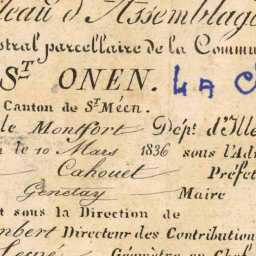 leau d'Assemblage
stral parcellaire de la Commu
ST ONEN. LA C
Canton de St Méen.
le Montfort Dépt d'Ille
n le 10 Mars 1836 sous l'Ad
Cahouet Préfet
Genetay Maire
t sous la Direction de
mbert Directeur des Contribution
Géomètre en Chef